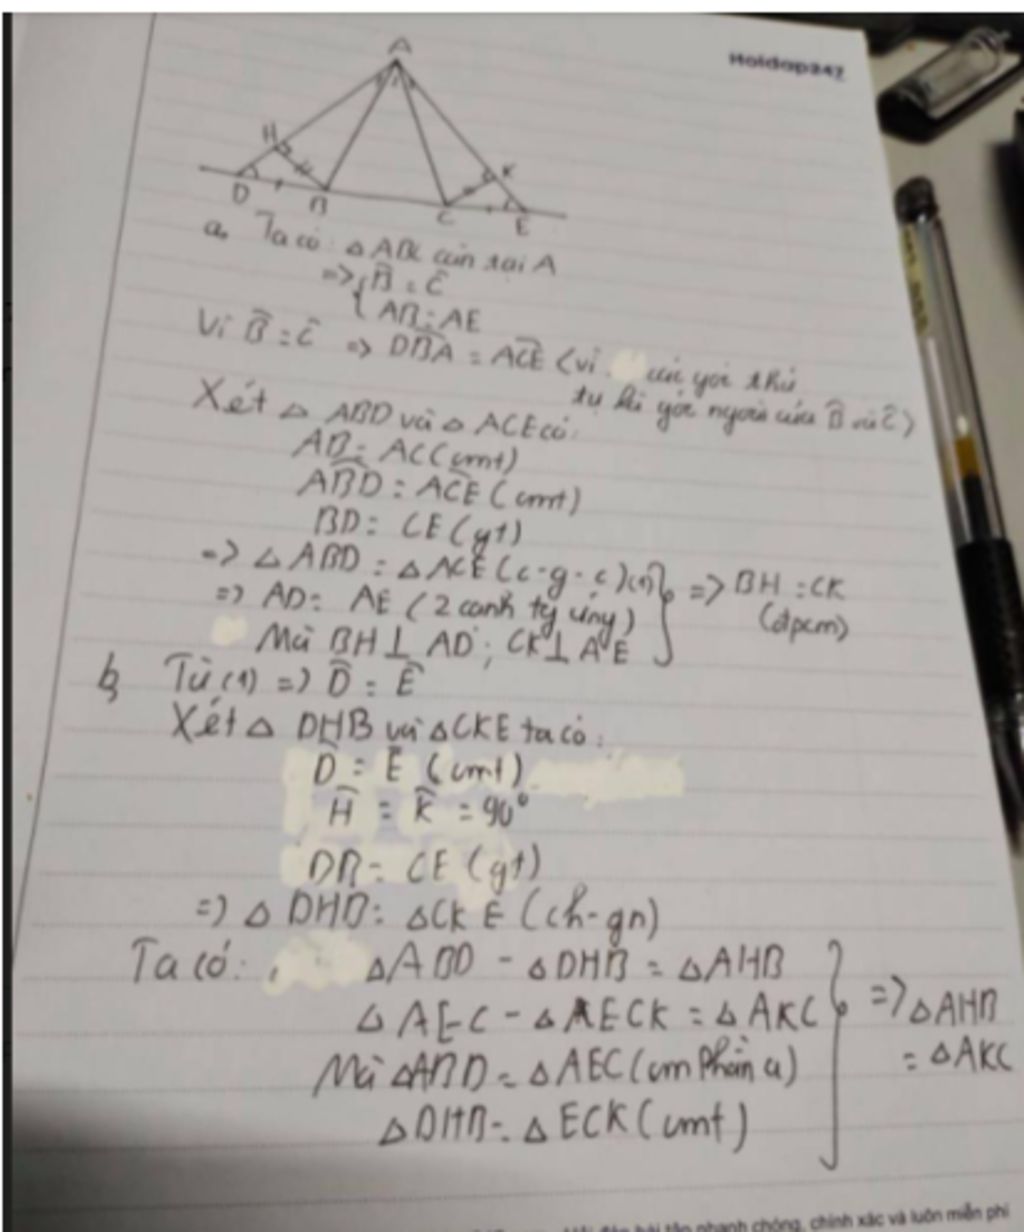 Hoidap247
A
H
K
D
B
C
E
a, Ta có: △ABC cân tại A
=> { B̂ = Ĉ
AB = AE
Vì B̂ = Ĉ => DBA = ACE (vì góc thứ
tự là góc ngoài của B̂ và Ĉ)
Xét △ ABD và △ ACE có:
AB = AC (cmt)
ABD = ACE (cmt)
BD = CE (gt)
=> △ ABD = △ ACE (c-g-c) (1)
=> AD = AE (2 cạnh tg ứng)
Mà BH ⊥ AD ; CK ⊥ AE
} => BH = CK
(đpcm)
b, Từ (1) => D̂ = Ê
Xét △ DHB và △CKE ta có:
D̂ = Ê (cmt)
Ĥ = K̂ = 90°
DB = CE (gt)
=> △ DHB = △CKE (ch-gn)
Ta có: △ABD - △DHB = △AHB
△ AEC - △ AECK = △ AKC
Mà △ABD = △AEC (cm Phần a)
△DHB = △ ECK (cmt)
} => △AHB
= △AKC
bài tập nhanh chóng, chính xác và luôn miễn phí